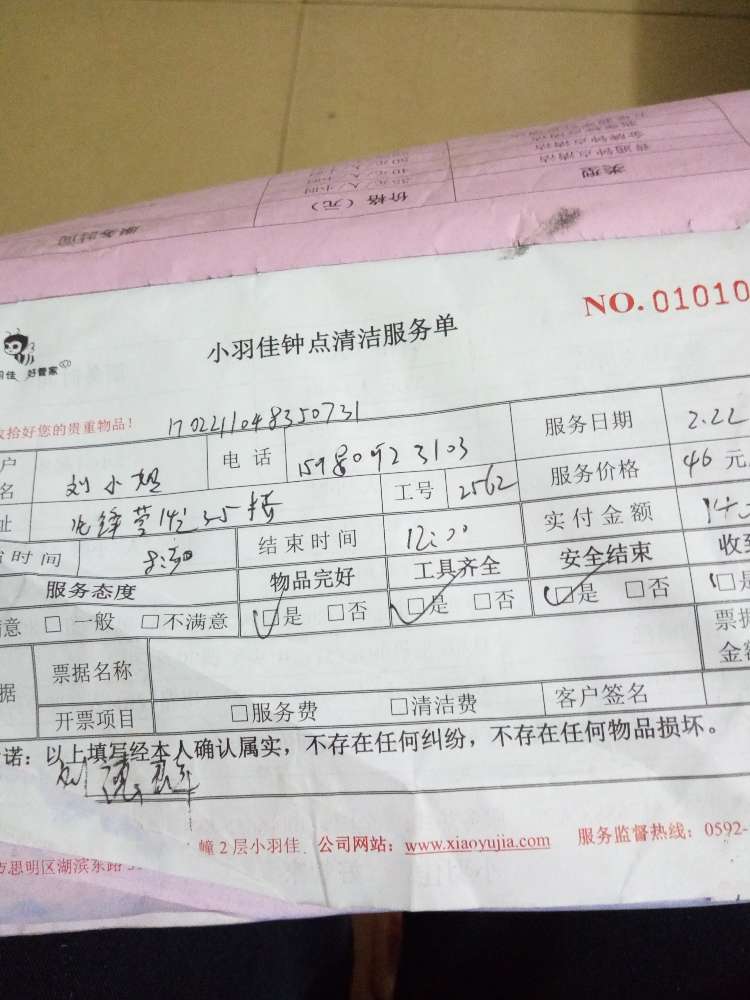 服务时间 价格（元） 类型
30元/人/小时 普通钟点清洁
40元/人/小时 金牌钟点清洁
50元/人/小时
NO. 01010
小羽佳钟点清洁服务单
羽佳 好管家
收拾好您的贵重物品！ 1702211048350731
户名 刘小姐 电话 15980923103 服务日期 2.22
址 工号 2562 服务价格 46元
时间 8:00 结束时间 12:00 实付金额
服务态度 物品完好 工具齐全 安全结束 收到
意 □一般 □不满意 □是 □否 □是 □否 □是 □否 □是
据 票据名称 票据金额
开票项目 □服务费 □清洁费 客户签名
诺：以上填写经本人确认属实，不存在任何纠纷，不存在任何物品损坏。
思明区湖滨东路 幢2层小羽佳 公司网站：www.xiaoyujia.com 服务监督热线：0592-